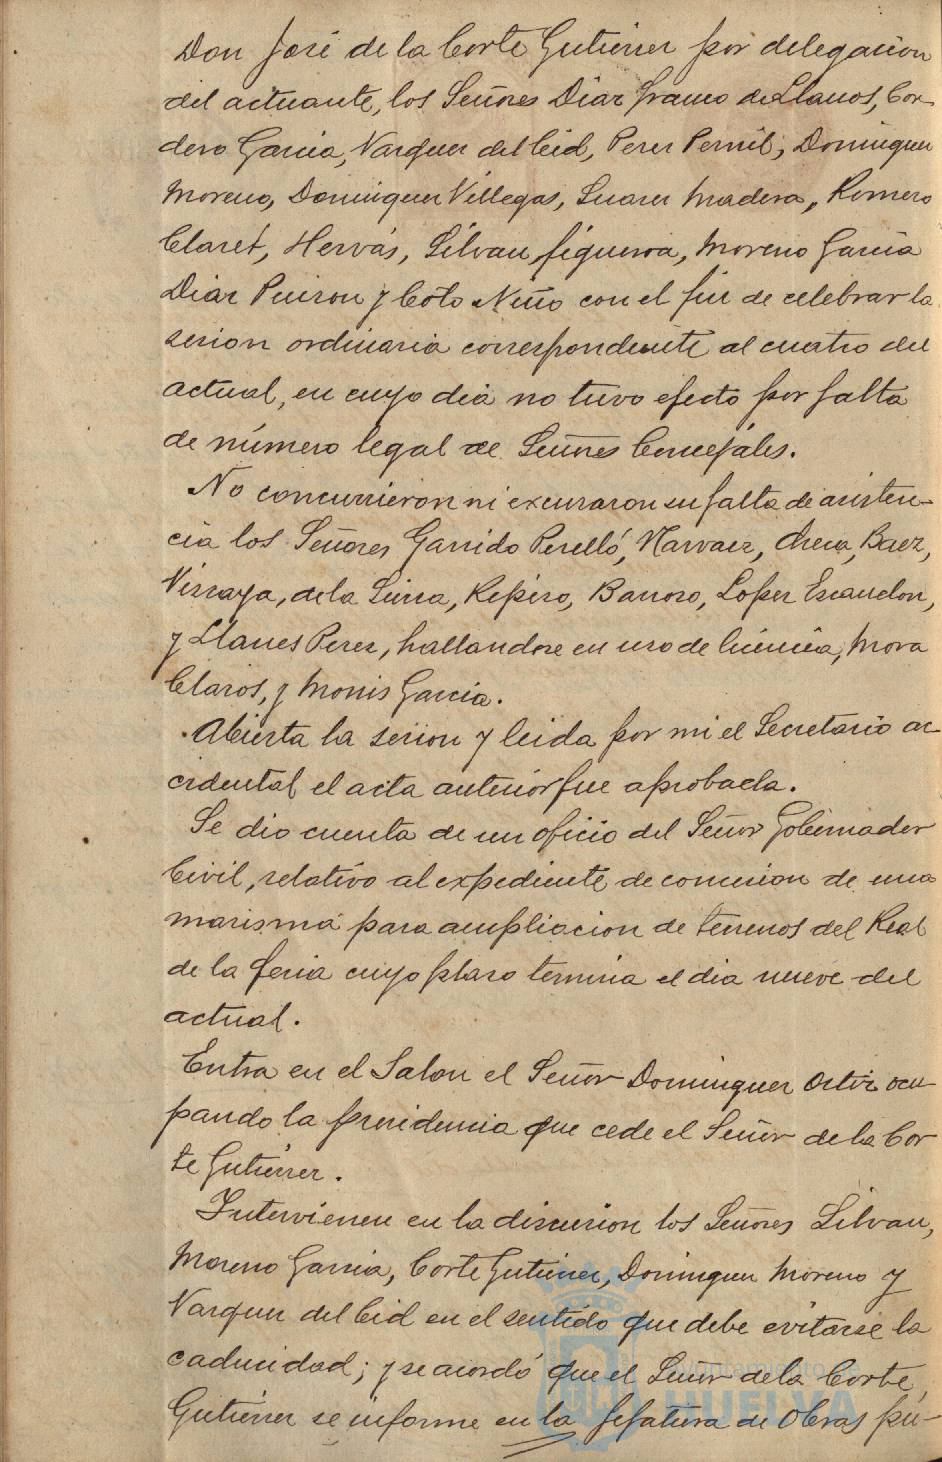 Don José de la Corte Gutierrez por delegación
del actuante, los Señores Diaz Franco de Llanos, Cor-
dero Garcia, Vazquez del Cid, Perez Pernil, Dominguez
Moreno, Dominguez Villegas, Suarez Madera, Romero
Claret, Hervás, Silvan, Figueroa, Moreno Garcia
Diaz Puizon y Coto Niño con el fin de celebrar la
sesion ordinaria correspondiente al cuatro del
actual, en cuyo dia no tuvo efecto por falta
de número legal de Señores Concejáles.
No concurrieron ni excusaron su falta de asisten-
cia los Señores Garrido Perelló, Narvaez, Checa, Baez,
Vizcaya, de la Sierra, Repiso, Barroso, Lopez Escandon,
y Llanes Perez, hallandose en uso de licencia, Mora
Claros, y Monis Garcia.
Abierta la sesion y leida por mi el Secretario ac-
cidental el acta anterior fue aprobada.
Se dio cuenta de un oficio del Señor Gobernador
Civil, relativo al expediente de concesion de una
marisma para ampliacion de terrenos del Real
de la feria cuyo plazo termina el dia nueve del
actual.
Entra en el Salon el Señor Dominguez Ortiz ocu-
pando la presidencia que cede el Señor de la Cor-
te Gutierrez.
Intervienen en la discusion los Señores Silvan,
Moreno Garcia, Corte Gutierrez, Dominguez Moreno y
Vazquez del Cid en el sentido que debe evitarse la
caducidad; y se acordó que el Señor de la Corte
Gutierrez se informe en la Jefatura de Obras pú-
Ayuntamiento de
HUELVA